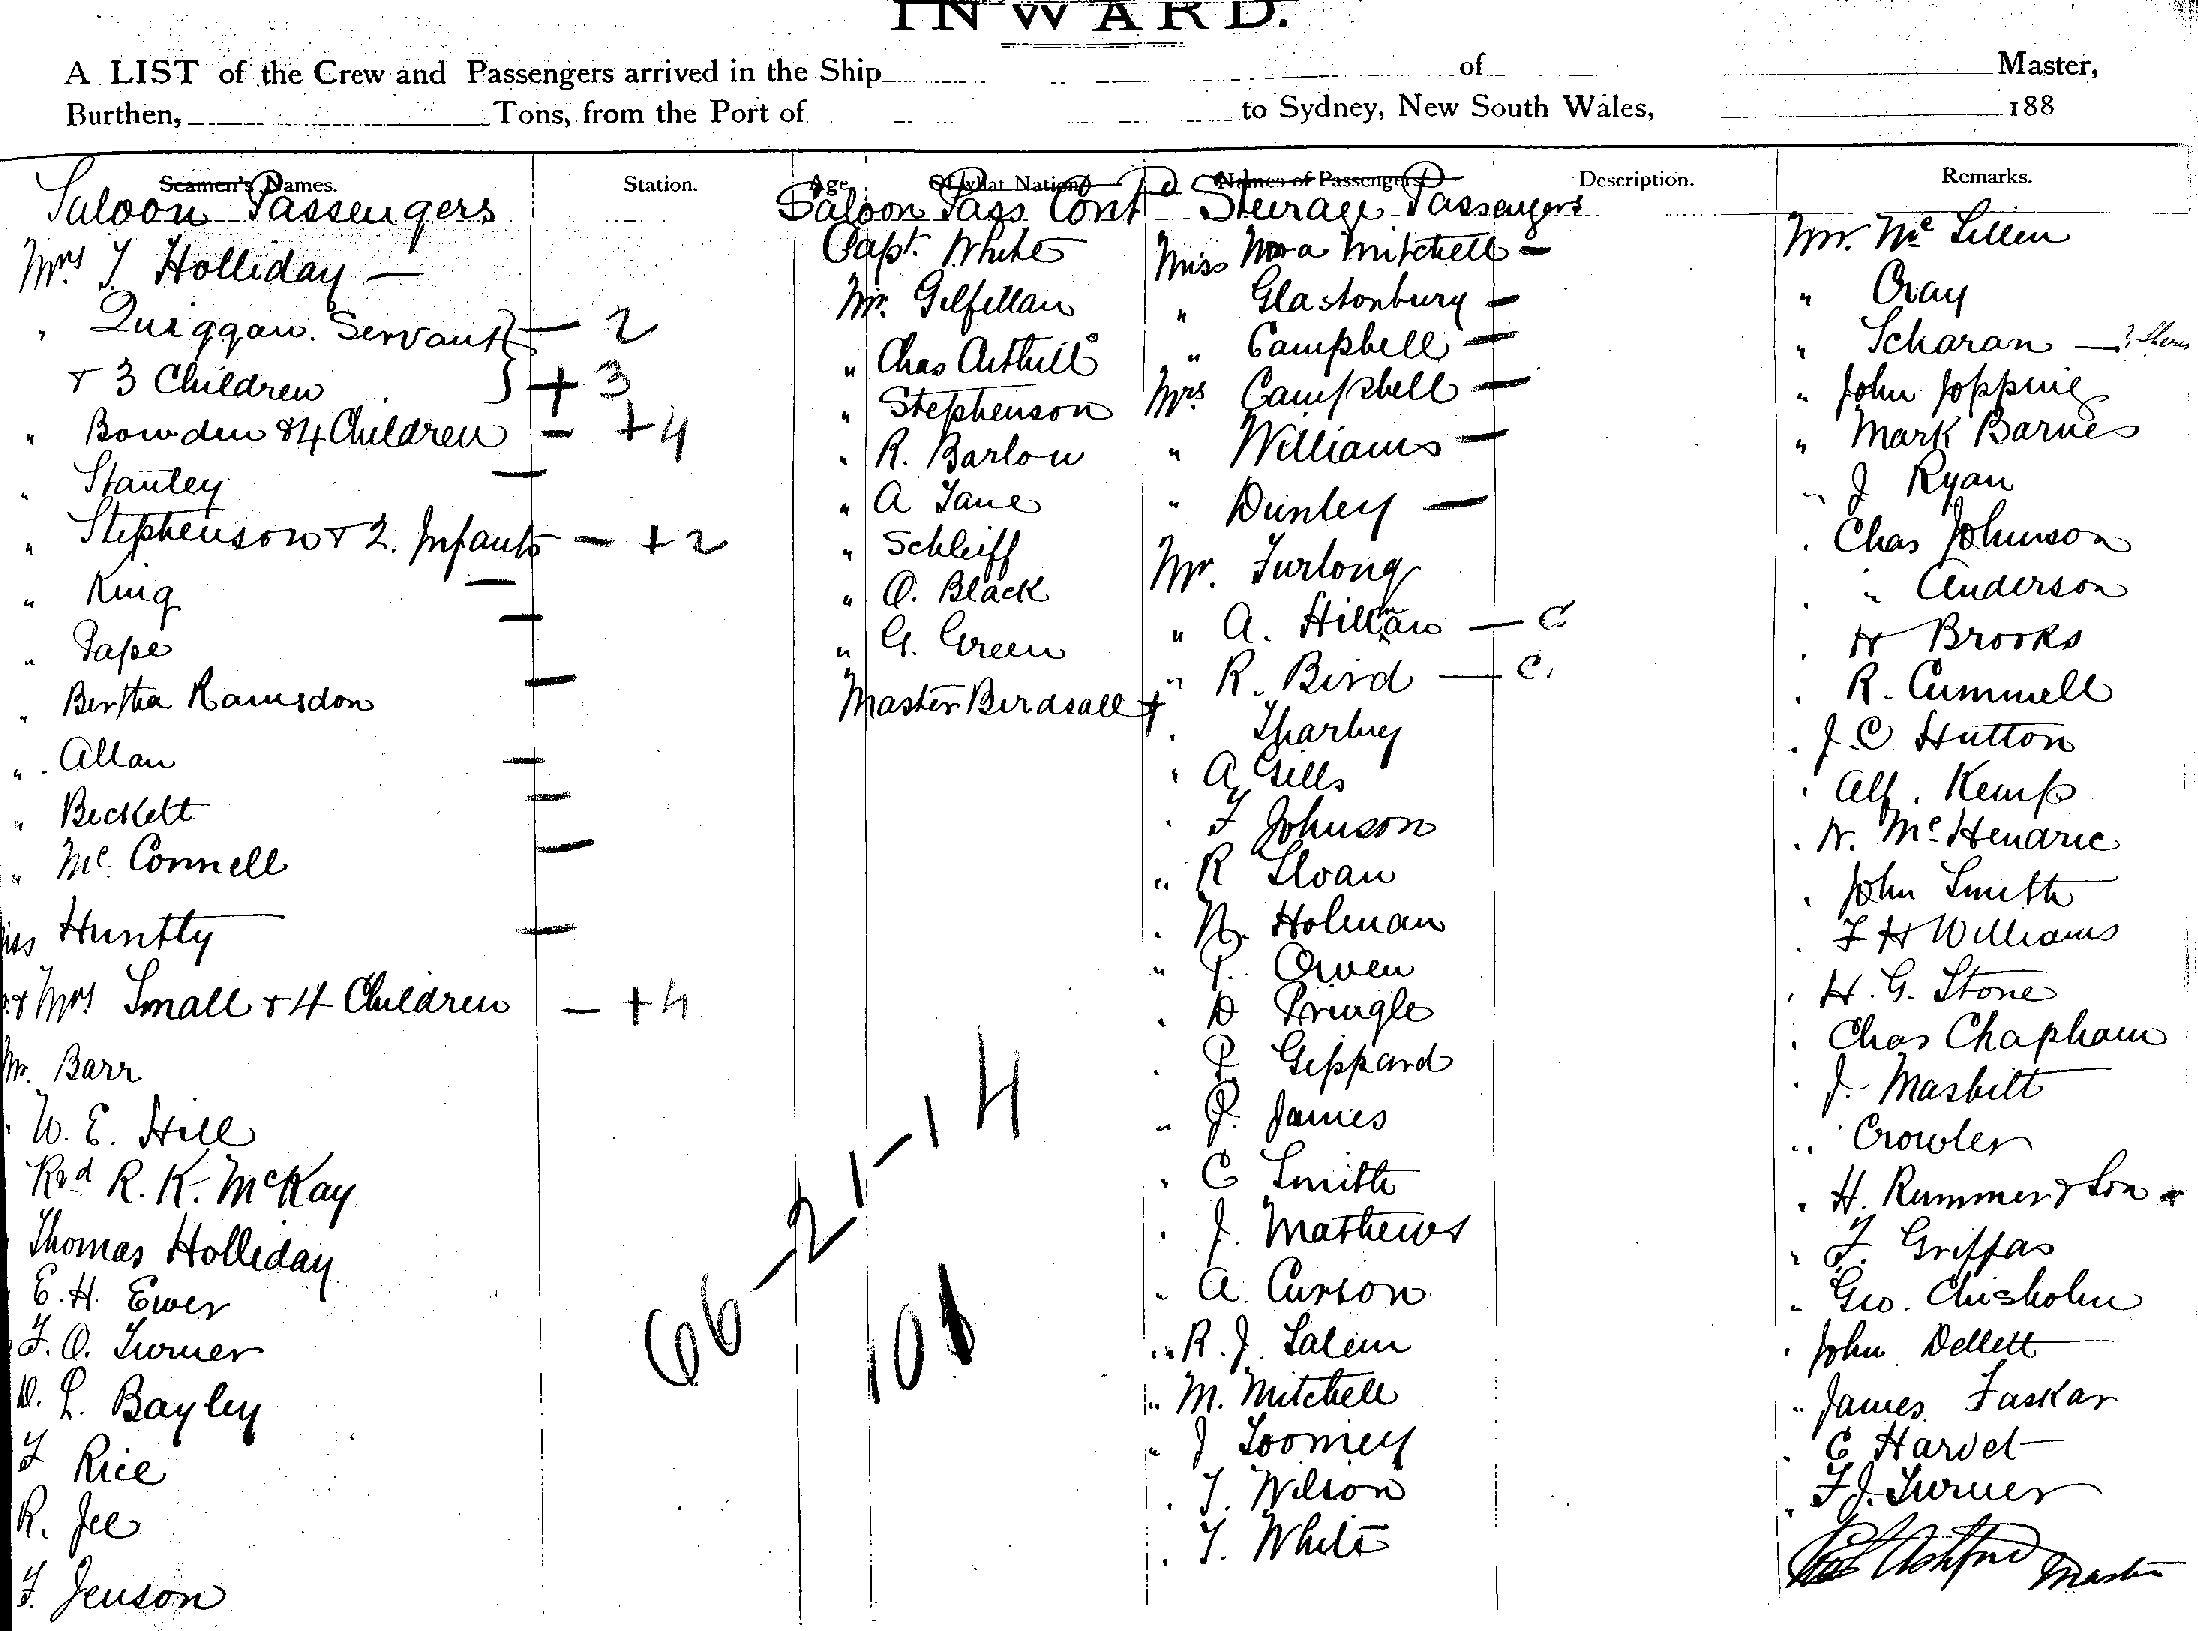 INWARD.
A LIST of the Crew and Passengers arrived in the Ship of Master,
Burthen, Tons, from the Port of to Sydney, New South Wales, 188
Seamen's Names.
Station.
Age
Of what Nation
Names of Passengers
Description.
Remarks.
Saloon Passengers
Mrs T Holliday —
" Quiggan. Servant } — 2
+ 3 Children } + 3
" Bowden & 4 Children — +4
" Stanley —
" Stephenson + 2. Infants — +2
" King —
" Pape —
" Bertha Ramsdon —
" Allan —
" Beckett —
" Mc Connell —
Huntly —
& Mrs Small + 4 Children — +4
Mr. Barr
W. E. Hill
Revd R. K. McKay
Thomas Holliday
E. H. Ewer
F. O. Turner
D. L. Bayley
F Rice
R. Jee
F. Jenson
Saloon Pass Contd
Capt. White
Mr. Gilfillan
" Chas
" Stephenson
" R. Barlow
" A Lane
" Schleiff
" O. Black
" G. Green
Master Birdsall +
66 — 21 — 14
101
Steerage Passengers
Miss Nora Mitchell —
" Glastonbury —
" Campbell —
Mrs Campbell —
" Williams —
" Dunley —
Mr. Furlong
" A. — C
" R. Bird — C.
" Tharby
" A. Gills
" F Johnson
" R Sloan
" N. Holman
" P. Owen
" D Pringle
" P. Geppard
" P. James
" C Smith
" J. Mathews
" A Curson
" R. J. Salem
" M. Mitchell
" J Toomey
" T. Wilson
" T. White
Mr. Mc Lellen
" Cray
" Scharan —
" John Jopping
" Mark Barnes
" J Ryan
" Chas Johnson
" " Anderson
" H Brooks
" R. Cummell
" J. C Hutton
" Alf. Kemp
" N. Mc Hendrie
" John Smith
" F H Williams
" H. G. Stone
" Chas Chapham
" J. Masbitt
" Crowler
" H. Rummer & Son
" F. Griffas
" Geo. Chisholm
" John Dellett
" James Faskar
" C Harvet
" F J. Turner
Ashford Master